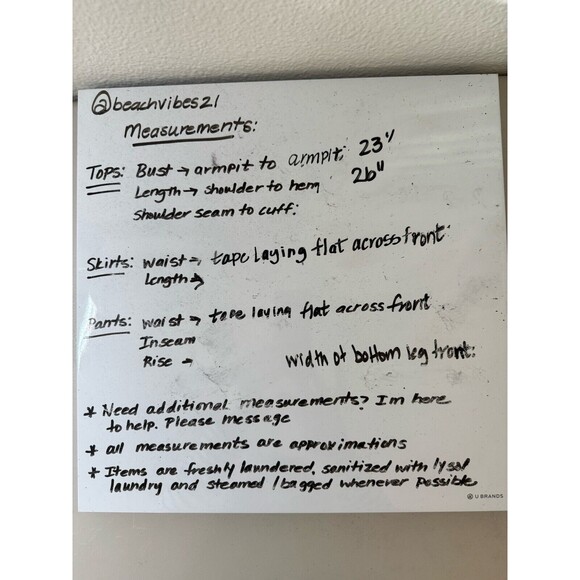 @beachvibes21
Measurements:
Tops: Bust → armpit to armpit: 23"
Length → shoulder to hem 26"
Shoulder seam to cuff:
Skirts: waist → tape laying flat across front:
Length →
Pants: waist → tape laying flat across front
Inseam
Rise → width of bottom leg front:
* Need additional measurements? Im here
to help. Please message
* all measurements are approximations
* Items are freshly laundered, sanitized with lysol
laundry and steamed / bagged whenever possible
U BRANDS